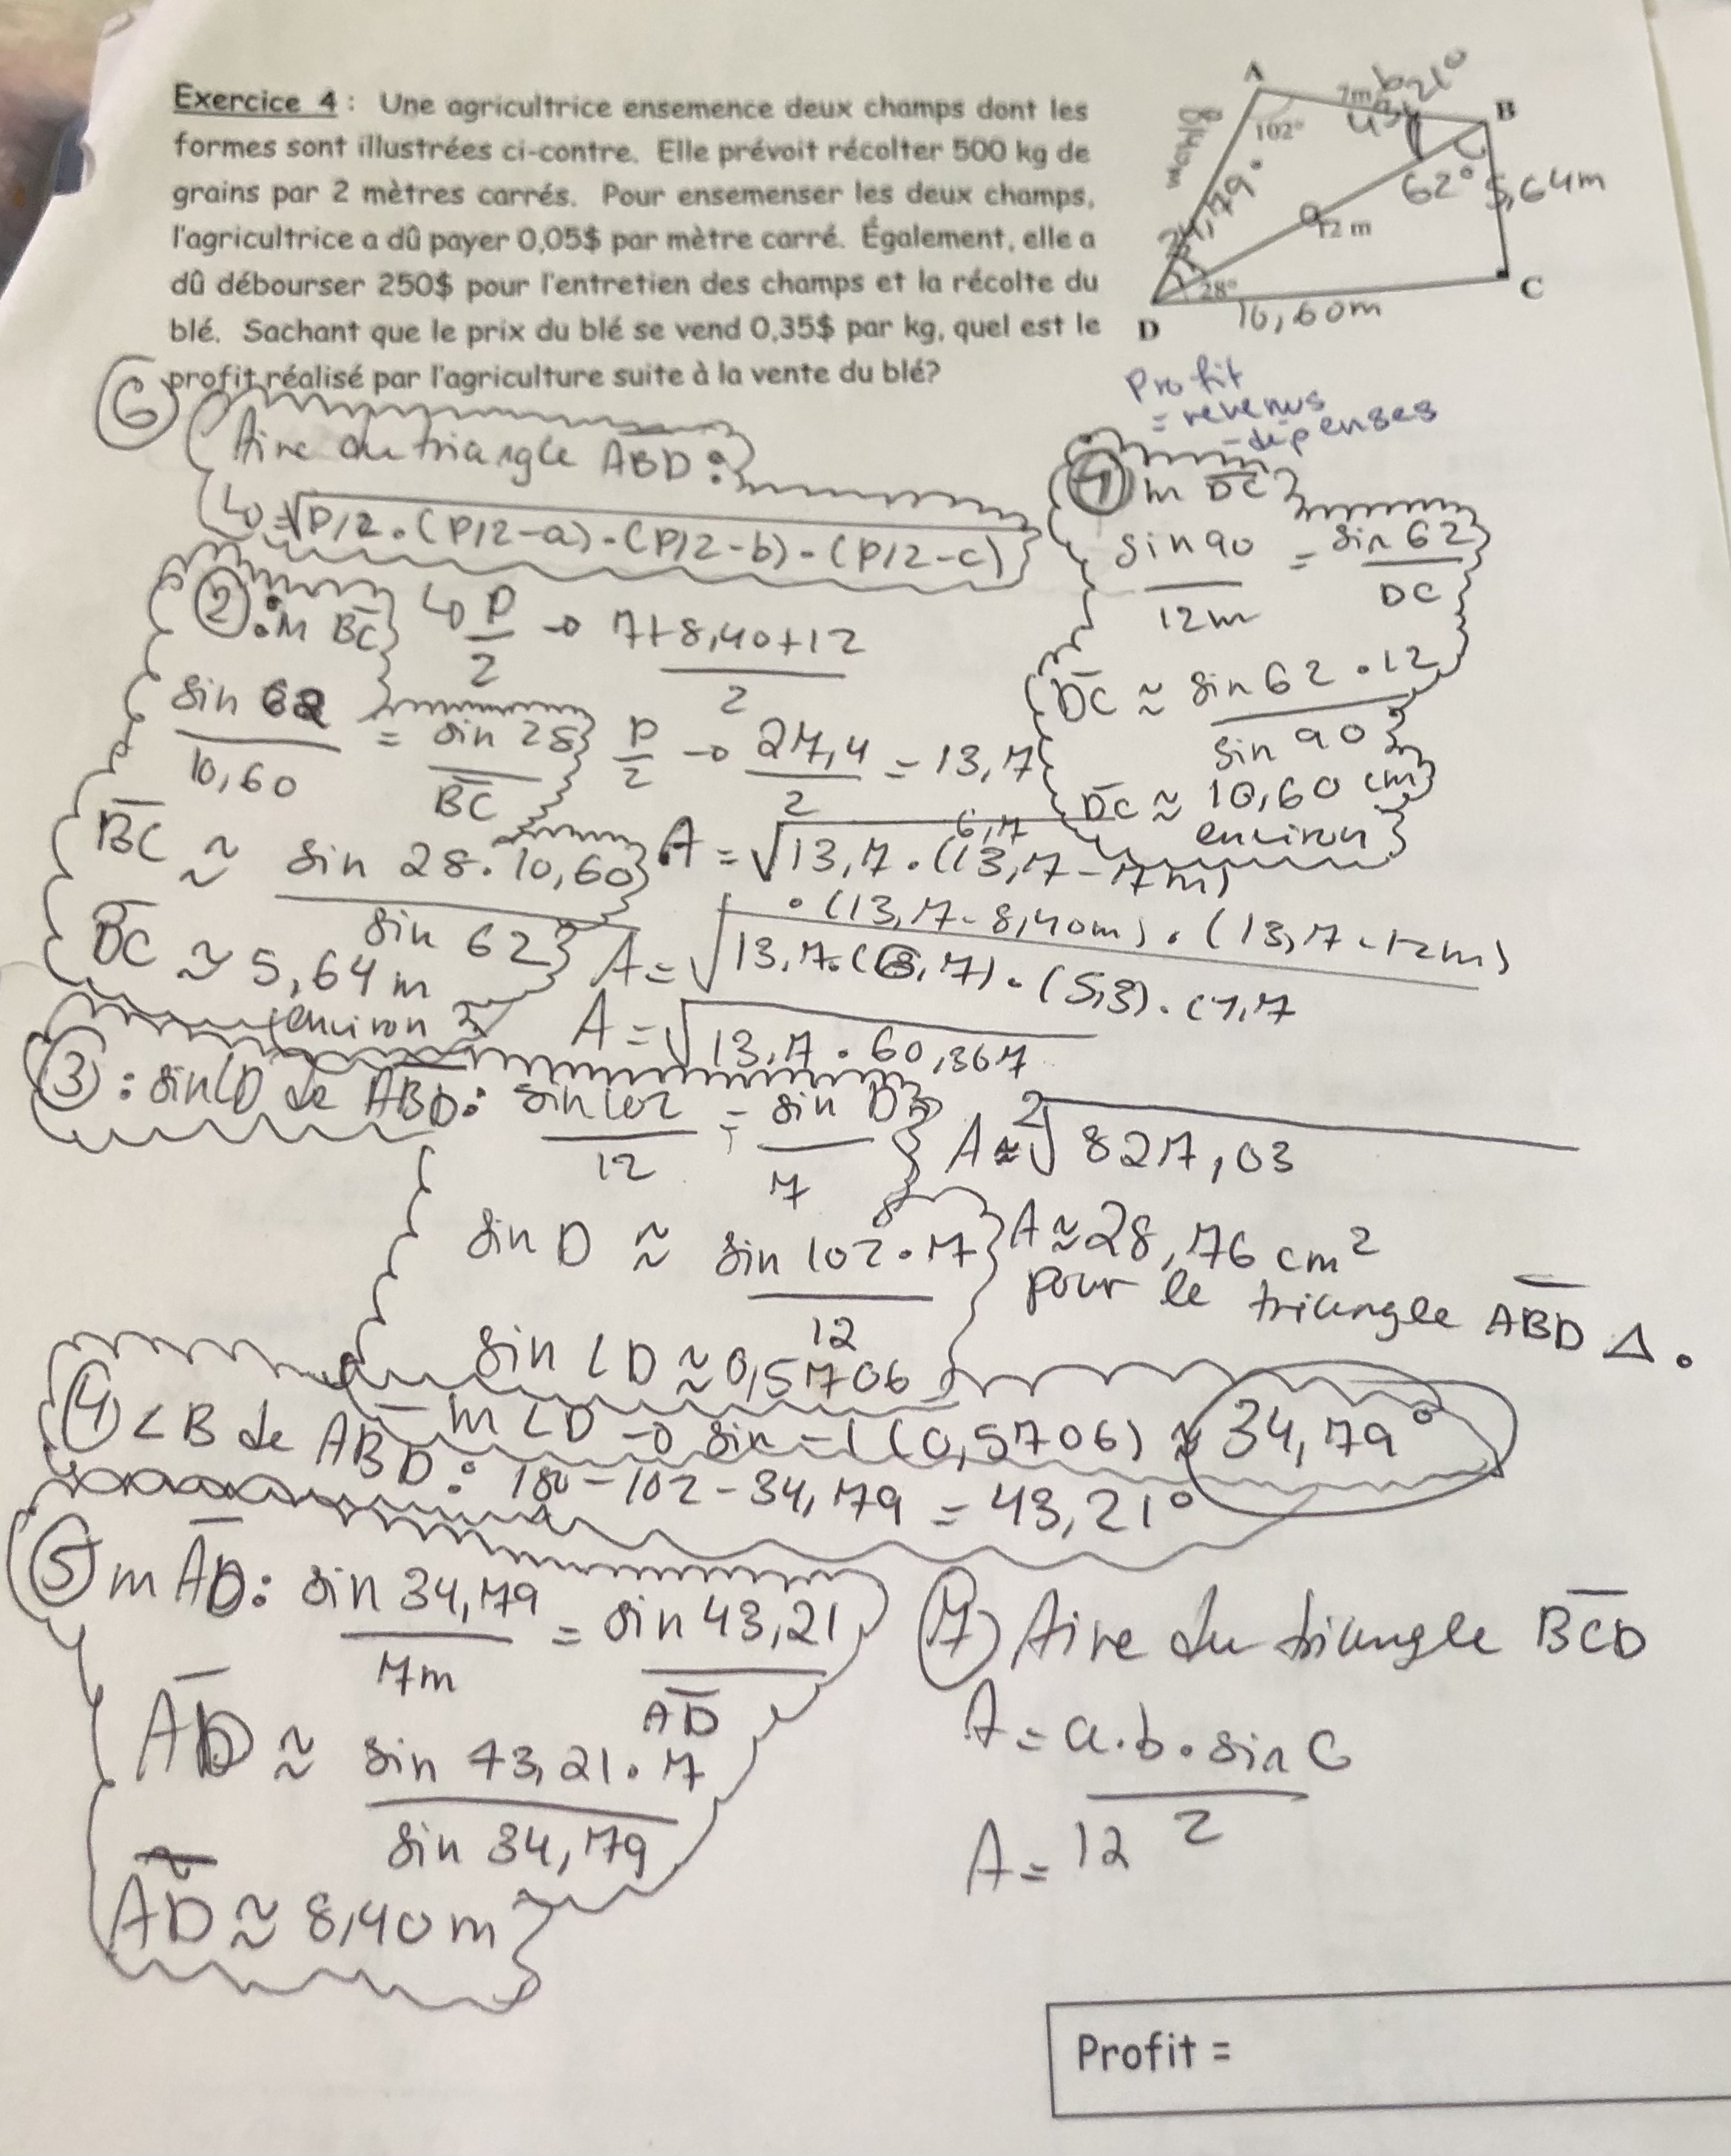 Exercice 4 : Une agricultrice ensemence deux champs dont les
formes sont illustrées ci-contre. Elle prévoit récolter 500 kg de
grains par 2 mètres carrés. Pour ensemenser les deux champs,
l'agricultrice a dû payer 0,05$ par mètre carré. Également, elle a
dû débourser 250$ pour l'entretien des champs et la récolte du
blé. Sachant que le prix du blé se vend 0,35$ par kg, quel est le
profit réalisé par l'agriculture suite à la vente du blé?
A
7m
B
102°
62°
5,64m
12 m
28°
D
10,60m
C
Profit
= revenus
- dépenses
⑥ Aire du triangle ABD :
↳ = √P/2 . (P/2-a) - (P/2-b) - (P/2-c)
↳ P/2 → 7+8,40+12 / 2
P/2 → 27,4 / 2 = 13,7
A = √13,7 . (13,7 - 7m)
6,7
. (13,7 - 8,40m) . (13,7 - 12m)
A = √13,7 . (6,7) . (5,3) . (1,7
A = √13,7 . 60,367
A ≈ ²√827,03
A ≈ 28,76 cm²
pour le triangle ABD Δ.
① m DC
sin 90 / 12m = sin 62 / DC
DC ≈ sin 62 . 12 / sin 90
DC ≈ 10,60 cm
environ
② : m BC
sin 62 / 10,60 = sin 28 / BC
BC ≈ sin 28 . 10,60 / sin 62
BC ≈ 5,64 m
(environ
③ : sin∠D de ABD : sin 102 / 12 = sin D / 7
sin D ≈ sin 102 . 7 / 12
sin ∠D ≈ 0,5706
m ∠D → sin-1 (0,5706) ≈ 34,79°
④ ∠B de ABD : 180 - 102 - 34,79 = 43,21°
⑤ m AD : sin 34,79 / 7m = sin 43,21 / AD
AD ≈ sin 43,21 . 7 / sin 34,79
AD ≈ 8,40 m
⑦ Aire du triangle BCD
A = a . b . sin C / 2
A = 12
Profit =